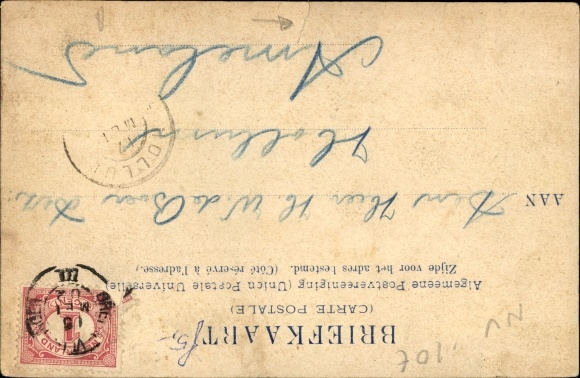 BRIEFKAART
(CARTE POSTALE)
Algemeene Postvereeniging (Union Postale Universelle)
Zijde voor het adres bestemd. (Côté réservé à l'adresse.)
AAN Den Heer H. W. de Boer
Hollum
Ameland
HOLLUM